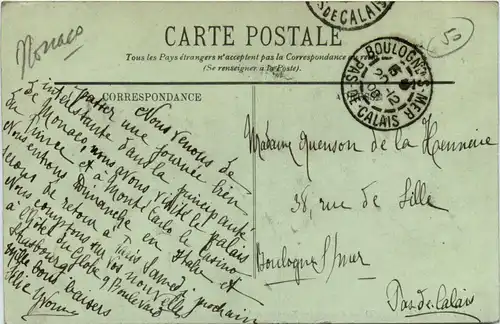 Monaco
CARTE POSTALE
Tous les Pays étrangers n'acceptent pas la Correspondance
(Se renseigner à la Poste).
CORRESPONDANCE
50
PAS DE CALAIS
BOULOGNE S. MER
PAS DE CALAIS
Nous venons de
passer une journée bien
intéressante dans la principauté
de Monaco nous avons visité le palais
du prince et à Monte Carlo le Casino
Nous entrons Dimanche en Italie et
serons de retour à Paris Samedi prochain
Nous comptons sur vos nouvelles
à l'Hôtel du Globe 9 Boulevard
Strasbourg
Mille bons baisers
Yvonne
Madame Quenson de la Hennerie
38, rue de Lille
Boulogne s/mer
Pas-de-Calais